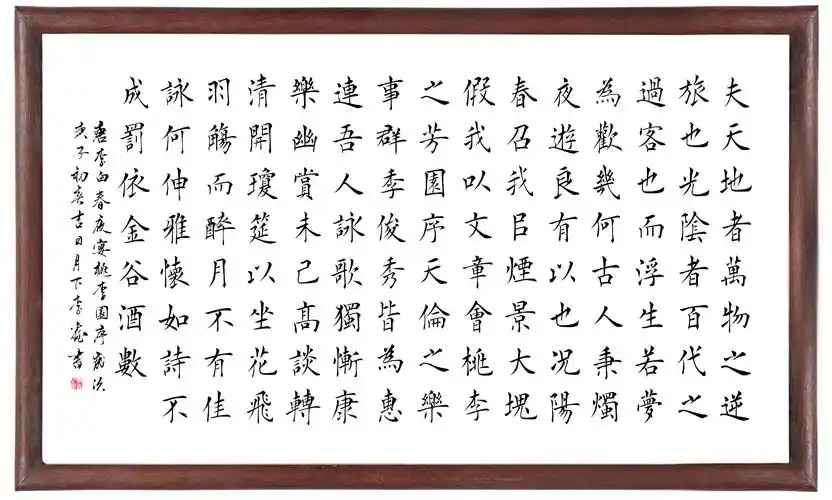 夫天地者萬物之逆
旅也光陰者百代之
過客也而浮生若夢
為歡幾何古人秉燭
夜遊良有以也況陽
春召我以煙景大塊
假我以文章會桃李
之芳園序天倫之樂
事群季俊秀皆為惠
連吾人詠歌獨慚康
樂幽賞未已高談轉
清開瓊筵以坐花飛
羽觴而醉月不有佳
詠何伸雅懷如詩不
成罰依金谷酒數
唐李白春夜宴桃李園序歲次
庚子初春吉日月下李書